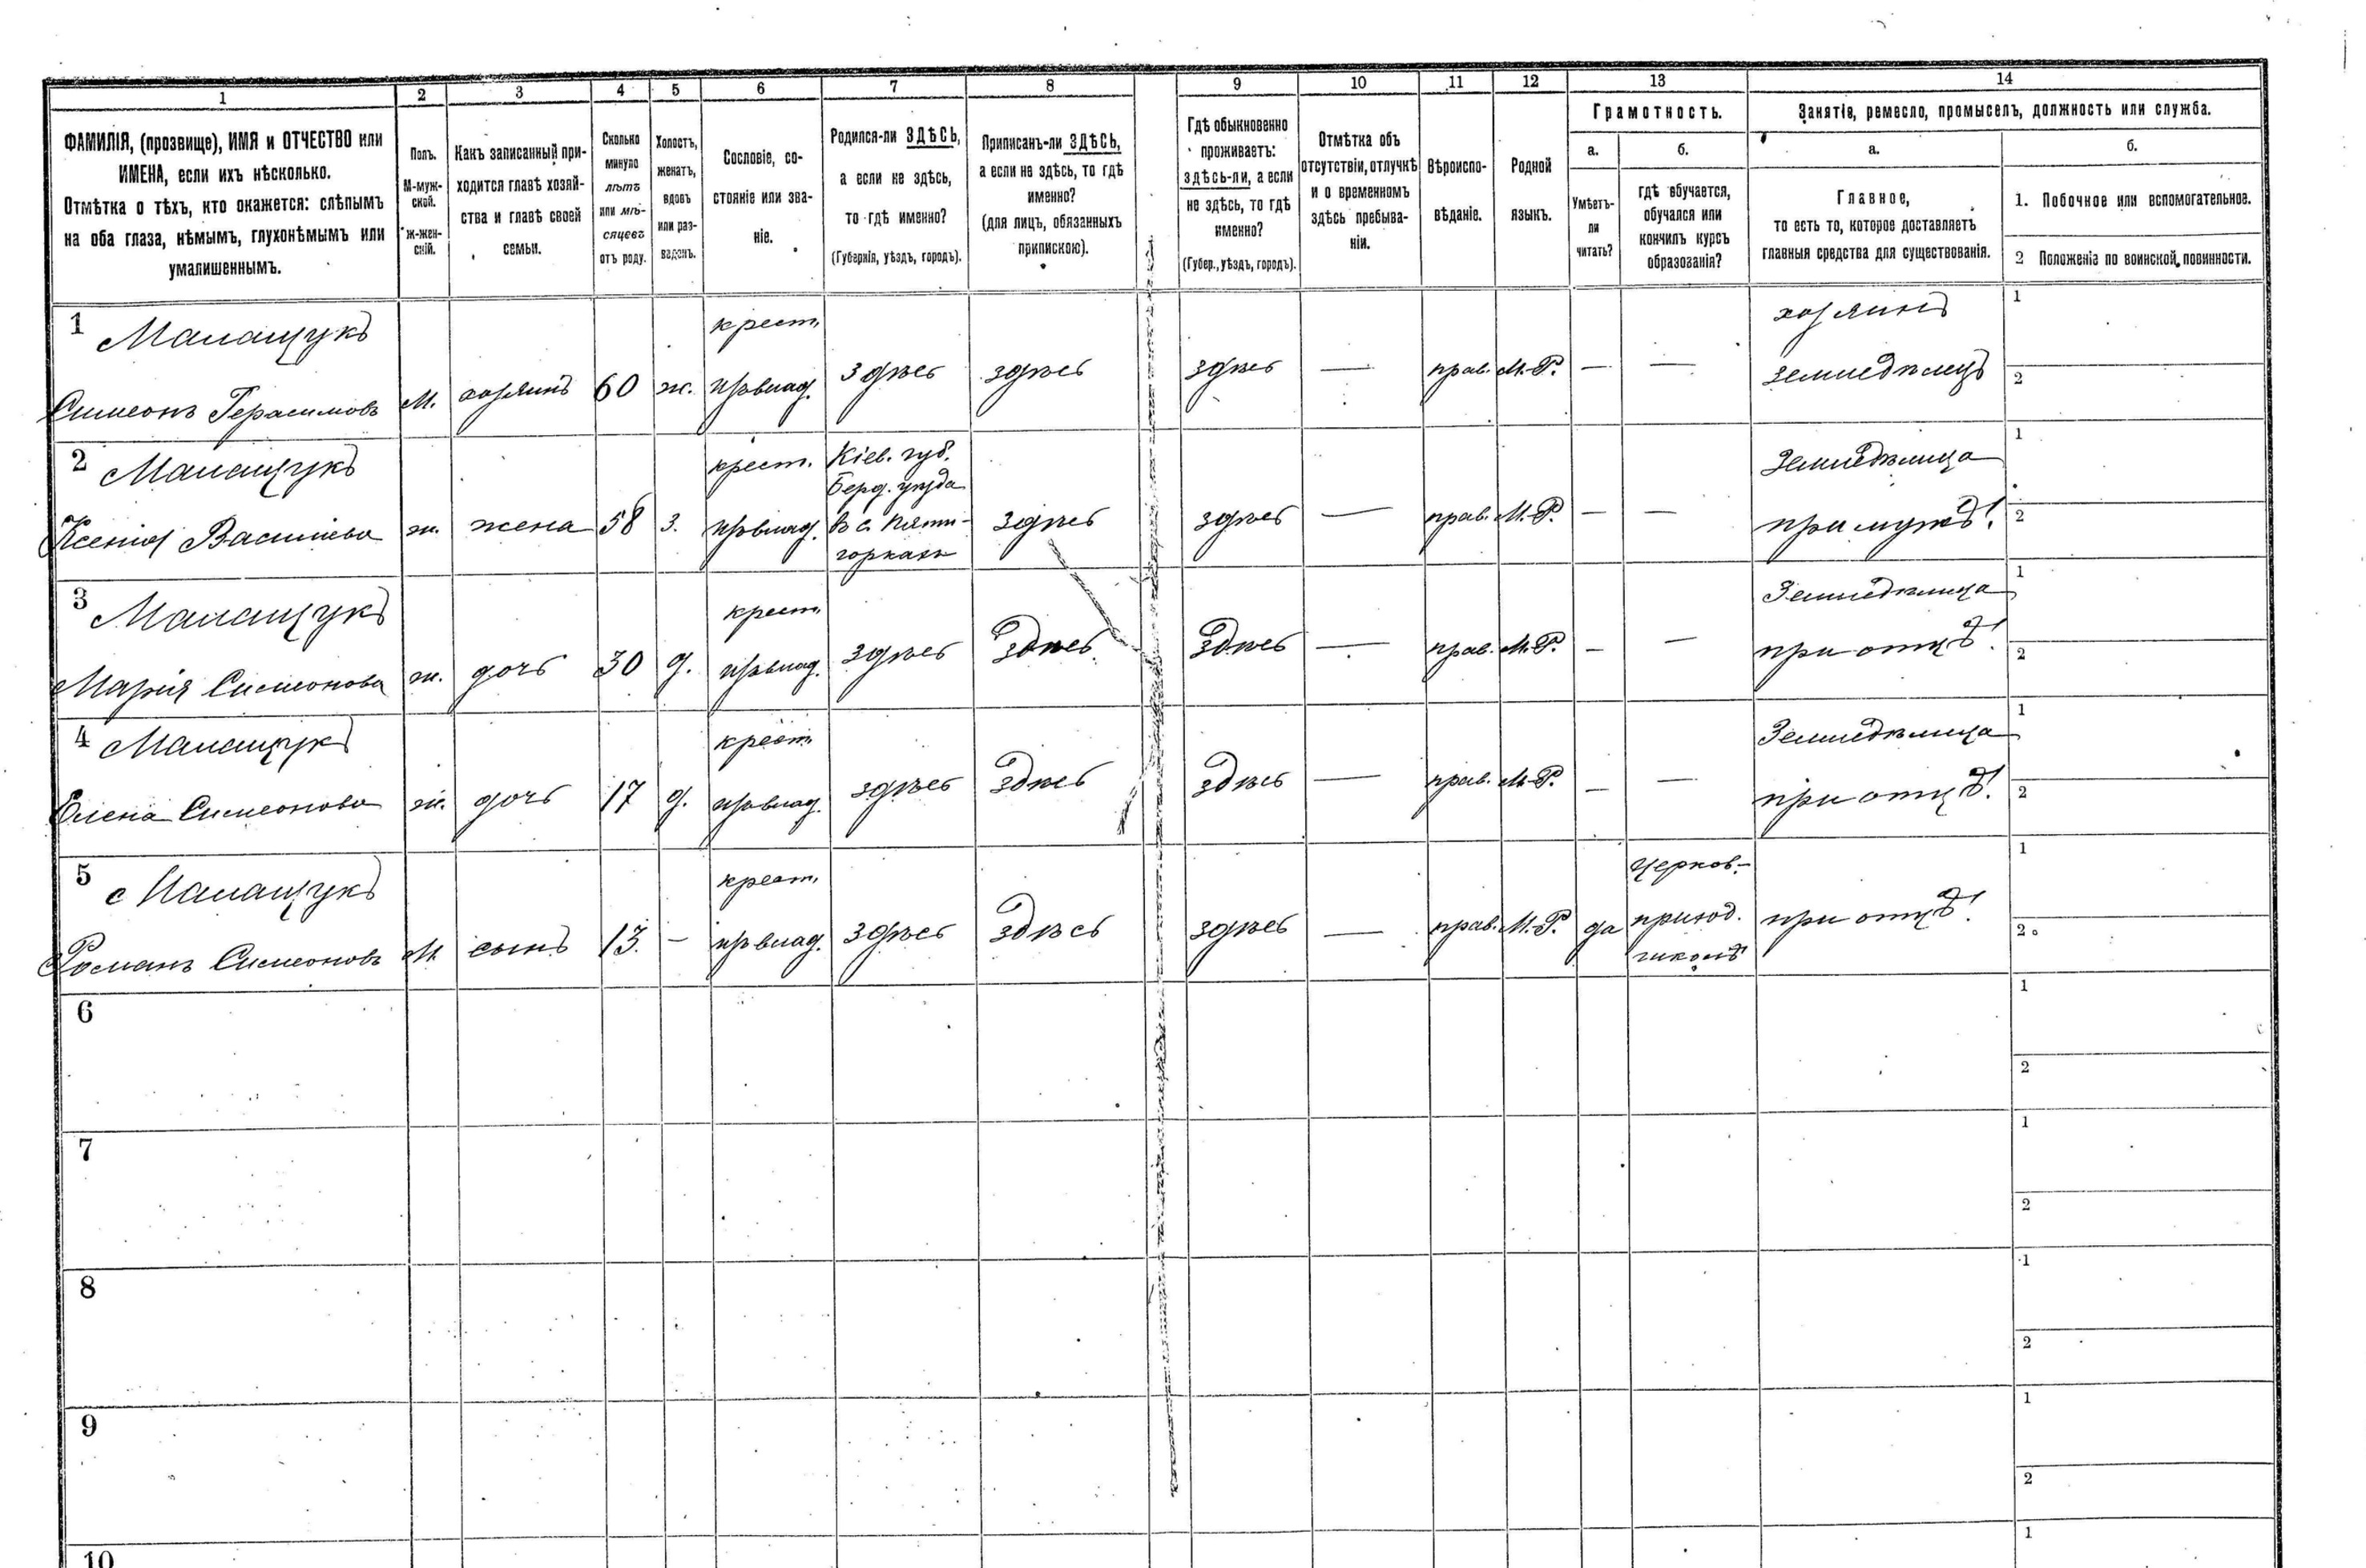 1 2 3 4 5 6 7 8 9 10 11 12 13 14
ФАМИЛІЯ, (прозвище), ИМЯ и ОТЧЕСТВО или
ИМЕНА, если ихъ нѣсколько.
Отмѣтка о тѣхъ, кто окажется: слѣпымъ
на оба глаза, нѣмымъ, глухонѣмымъ или
умалишеннымъ.
Полъ.
М-муж-
ской.
ж-жен-
скій.
Какъ записанный при-
ходится главѣ хозяй-
ства и главѣ своей
семьи.
Сколько
минуло
лѣтъ
или мѣ-
сяцевъ
отъ роду.
Холостъ,
женатъ,
вдовъ
или раз-
веденъ.
Сословіе, со-
стояніе или зва-
ніе.
Родился-ли ЗДѢСЬ,
а если не здѣсь,
то гдѣ именно?
(Губернія, уѣздъ, городъ).
Приписанъ-ли ЗДѢСЬ,
а если не здѣсь, то гдѣ
именно?
(для лицъ, обязанныхъ
припискою).
Гдѣ обыкновенно
проживаетъ:
здѣсь-ли, а если
не здѣсь, то гдѣ
именно?
(Губер., уѣздъ, городъ).
Отмѣтка объ
отсутствіи, отлучкѣ
и о временномъ
здѣсь пребыва-
ніи.
Вѣроиспо-
вѣданіе.
Родной
языкъ.
Грамотность.
а.
Умѣетъ-
ли
читать?
б.
гдѣ обучается,
обучался или
кончилъ курсъ
образованія?
Занятіе, ремесло, промыселъ, должность или служба.
а.
Главное,
то есть то, которое доставляетъ
главныя средства для существованія.
б.
1. Побочное или вспомогательное.
2 Положеніе по воинской повинности.
1 Малащукъ крест. хозяинъ 1
Симеонъ Герасимовъ М. хозяинъ 60 ж. здѣсь здѣсь здѣсь — прав. М.-Р. — — земледѣлецъ 2
2 Малащукъ крест. Кіев. губ. Земледѣлица 1
Берд. уѣзда
Ксенія Васильева ж. жена 58 з. в с. Пяти- здѣсь здѣсь — прав. М.-Р. — — при мужѣ. 2
горкахъ
3 Малащукъ крест. Земледѣлица 1
Марія Симеонова ж. дочь 30 д. здѣсь здѣсь здѣсь — прав. М.-Р. — — при отцѣ. 2
4 Малащукъ крест. Земледѣлица 1
Елена Симеонова ж. дочь 17 д. здѣсь здѣсь здѣсь — прав. М.-Р. — — при отцѣ. 2
5 Малащукъ крест. Церков.- 1
Романъ Симеоновъ М. сынъ 13. — здѣсь здѣсь здѣсь — прав. М.-Р. да приход. при отцѣ. 2
школѣ
6 1
2
7 1
2
8 1
2
9 1
2
10 1